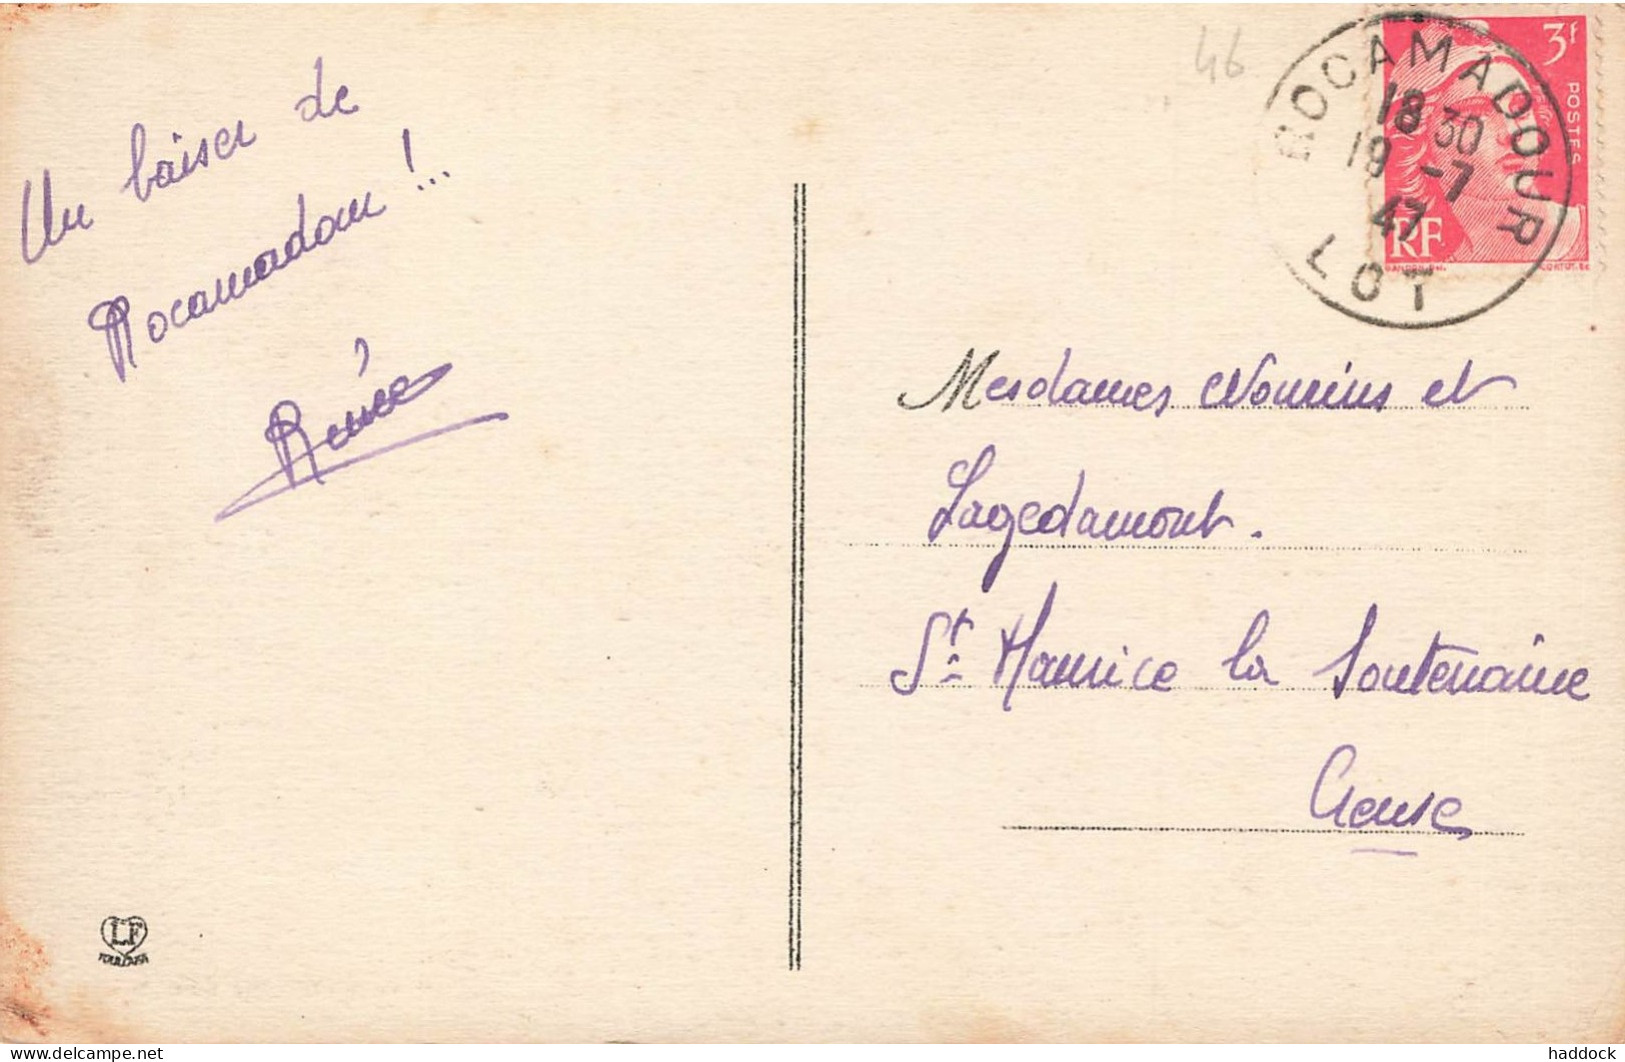 46
ROCAMADOUR
18 30
19 -7
47
LOT
3f
POSTES
RF
GANDON DEL.
CORTOT. SC
Un baiser de
Rocamadour !...
Renée
Mesdames et
Lagedamont.
St Maurice la Souterraine
Creuse
LF
delcampe.net
haddock